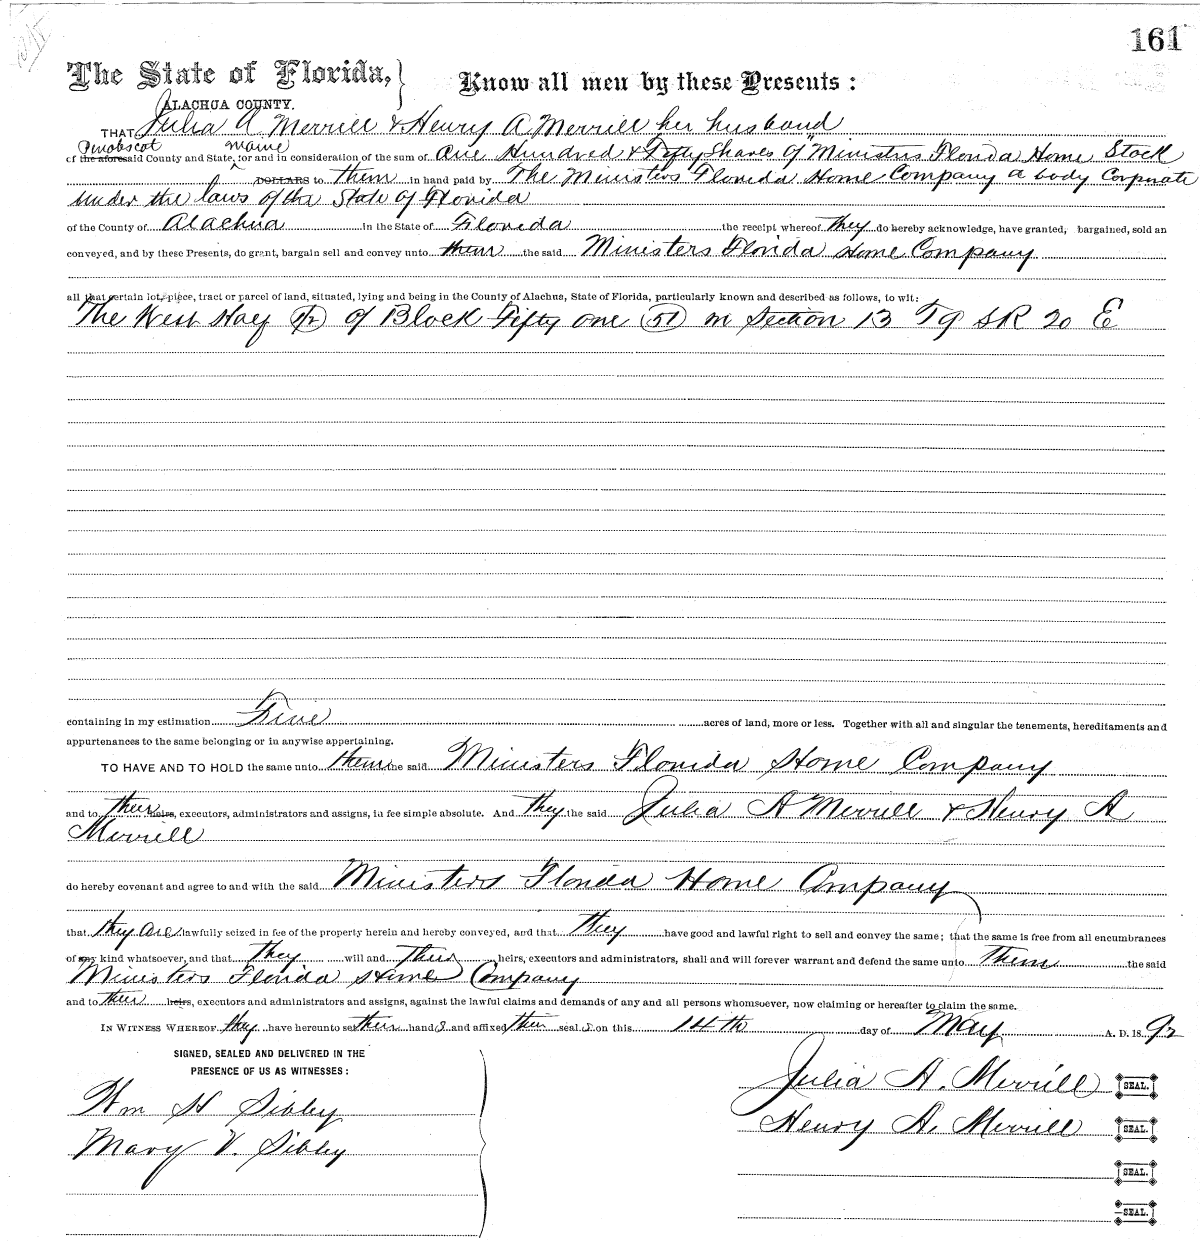 161
The State of Florida,
ALACHUA COUNTY.
Know all men by these Presents:
THAT Julia A Merrill & Henry A Merrill her husband
Penobscot Maine
of the aforesaid County and State, for and in consideration of the sum of One Hundred & Fifty Shares of "Ministers Florida Home Stock
DOLLARS to them in hand paid by The Ministers Florida Home Company a body Corporate
under the laws of the State of Florida
of the County of Alachua in the State of Florida the receipt whereof they do hereby acknowledge, have granted, bargained, sold an
conveyed, and by these Presents, do grant, bargain sell and convey unto them the said Ministers Florida Home Company
all that certain lot, piece, tract or parcel of land, situated, lying and being in the County of Alachua, State of Florida, particularly known and described as follows, to wit:
The West Half (1/2) of Block Fifty one (51) in Section 13 T9 S R 20 E
containing in my estimation Five acres of land, more or less. Together with all and singular the tenements, hereditaments and
appurtenances to the same belonging or in anywise appertaining.
TO HAVE AND TO HOLD the same unto them the said Ministers Florida Home Company
and to their heirs, executors, administrators and assigns, in fee simple absolute. And they the said Julia A Merrill & Henry A
Merrill
do hereby covenant and agree to and with the said Ministers Florida Home Company
that they are lawfully seized in fee of the property herein and hereby conveyed, and that they have good and lawful right to sell and convey the same; that the same is free from all encumbrances
of any kind whatsoever, and that they will and their heirs, executors and administrators, shall and will forever warrant and defend the same unto Them the said
Ministers Florida Home Company
and to their heirs, executors and administrators and assigns, against the lawful claims and demands of any and all persons whomsoever, now claiming or hereafter to claim the same.
IN WITNESS WHEREOF they have hereunto set their hands and affixed their seals on this 14th day of May A. D. 18 92
SIGNED, SEALED AND DELIVERED IN THE
PRESENCE OF US AS WITNESSES:
Wm H Sibley
Mary V. Sibley
Julia A. Merrill SEAL.
Henry A. Merrill SEAL.
SEAL.
SEAL.